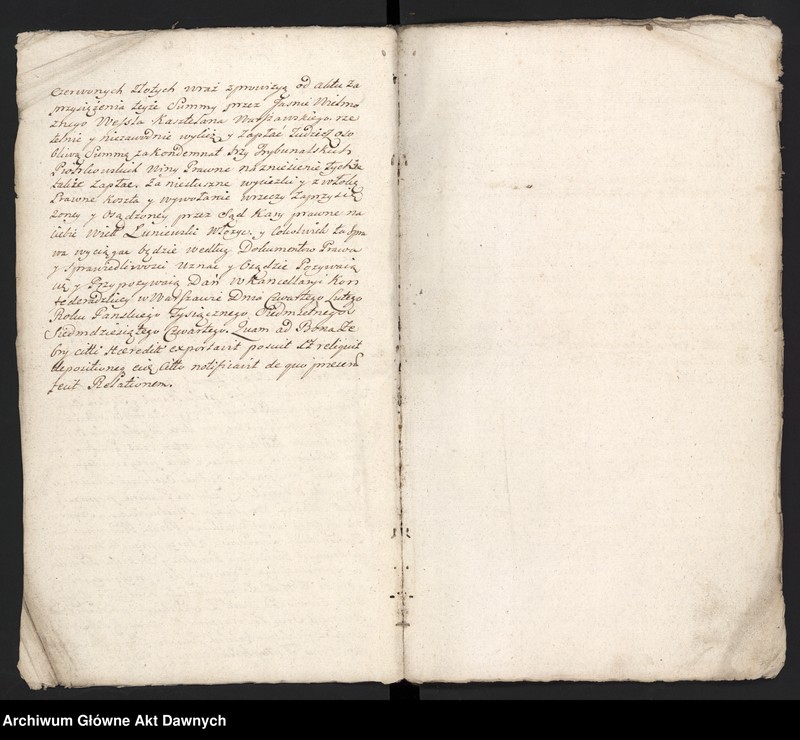 czerwonych złotych wraz z prowizyą od aktu za
przysiężenia teyże Summy przez Jaśnie Wielmo
żnego Wessla Kasztelana Warszawskiego rze
telnie y niezawodnie wyliczy y zapłać tudzież oso
bliwą Summę za kondemnat trzy Trybunalskich
Piotrkowskich Winy Prawne na zniesienie tychże
także zapłac. Za niesłuszne wycieczki y zwłokę
Prawne koszta y wywołanie w rzeczy zaprzysię
żoney y osądzoney przez Sąd Kary prawne na
Ciebie Wieli Łuniewski Włożyc. y Cokolwiek ta Spra
wa wyciągac będzie według Dokumentow Prawa
y Sprawiedliwości Uznac y Osądzic Pozywaią
się y Przypozywaią Dań w Kancellaryi Kon
federackiey w Warszawie Dnia Czwartego Lutego
Roku Panskiego Tysiącznego Siedmsetnego
Siedmdziesiątego Czwartego. Quam ad Bona Ze
bry citti Haeredit exportavit posuit et reliquit
depositionēq eius Citto notificavit de quo praesen
fecit Relationem.
Archiwum Główne Akt Dawnych